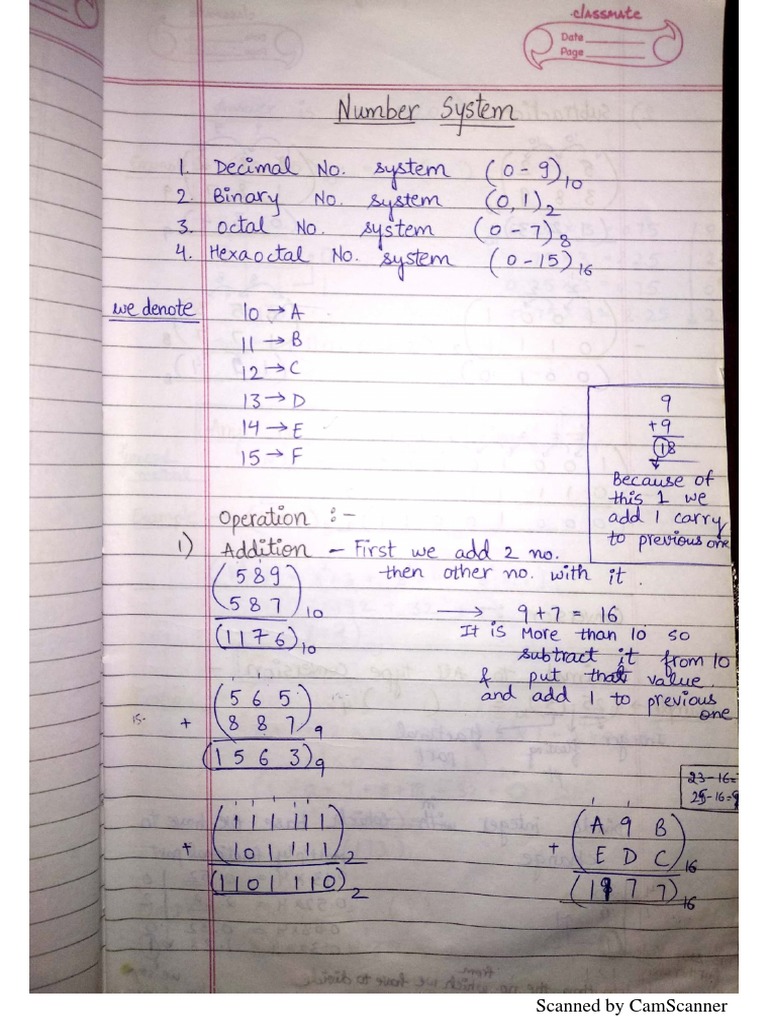 classmate
Date
Page
Number System
1. Decimal No. system (0-9)10
2. Binary No. system (0,1)2
3. Octal No. system (0-7)8
4. Hexaoctal No. system (0-15)16
we denote
10 → A
11 → B
12 → C
13 → D
14 → E
15 → F
9
+9
18
Because of
this 1 we
add 1 carry
to previous one
Operation :-
1) Addition - First we add 2 no.
then other no. with it.
(589
587)10
(1176)10
→ 9+7 = 16
It is More than 10 so
subtract it from 10
& put that value
and add 1 to previous
one
15.
1 1
(565
+ 887)9
(1563)9
23-16=
25-16=9
(111111
+ 101111)2
(1101110)2
1 1
(A9B
+ EDC)16
(1977)16
Scanned by CamScanner